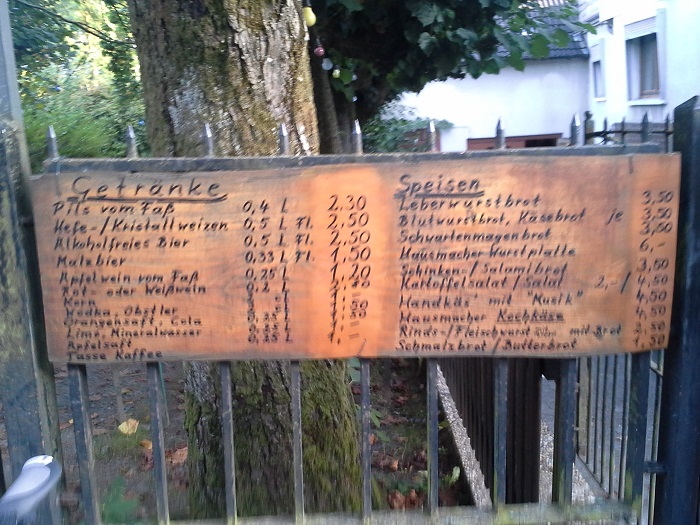 Getränke
Pils vom Faß 0,4 L 2.30
Hefe-/Kristallweizen 0,5 L Fl. 2,50
Alkoholfreies Bier 0,5 L Fl. 2,50
Malzbier 0,33 L Fl. 1,50
Apfelwein vom Faß 0,25 L 1.20
Rot- oder Weißwein 0,2 L
Korn
Wodka, Obstler
Orangensaft, Cola
Limo, Mineralwasser
Apfelsaft
Tasse Kaffee
Speisen
Leberwurstbrot 3,50
Blutwurstbrot, Käsebrot je 3,50
Schwartenmagenbrot 3,50
Hausmacher Wurstplatte 6,-
Schinken-/Salamibrot 3,50
Kartoffelsalat/Salat 2,-/ 4,50
Handkäs' mit "Musik" 4,50
Hausmacher Kochkäse 4,50
Rinds-/Fleischwurst mit Brot
Schmalzbrot/Butterbrot 1,50